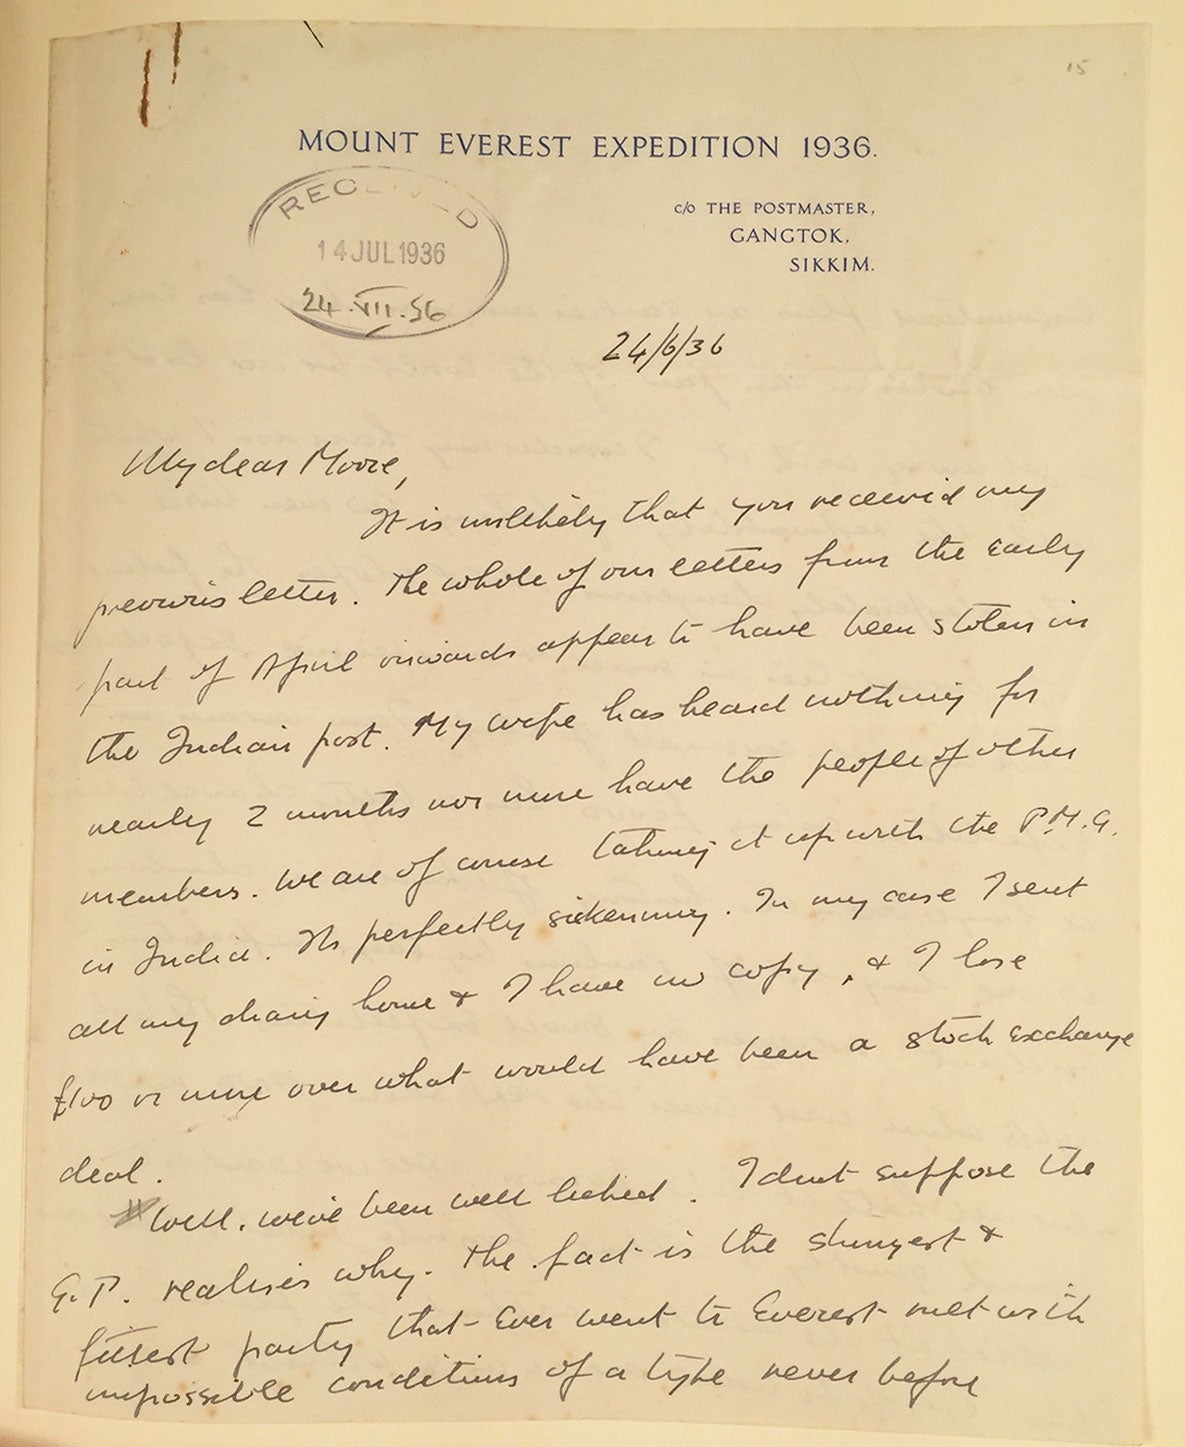 15
MOUNT EVEREST EXPEDITION 1936.
c/o THE POSTMASTER,
GANGTOK,
SIKKIM.
RECEIVED
14 JUL 1936
24.VII.36
24/6/36
My dear Moore,
It is unlikely that you received my
previous letter. The whole of our letters from the early
part of April onwards appear to have been stolen in
the Indian post. My wife has heard nothing for
nearly 2 months nor have the people of other
members. We are of course taking it up with the P.M.G.
in India. Its perfectly sickening. In my case I sent
all my diary home & I have no copy, & I lose
£100 or more over what would have been a stock exchange
deal.
Well, we've been well licked. I dont suppose the
G.P. realises why. The fact is the strongest &
fittest party that ever went to Everest met with
impossible conditions of a type never before